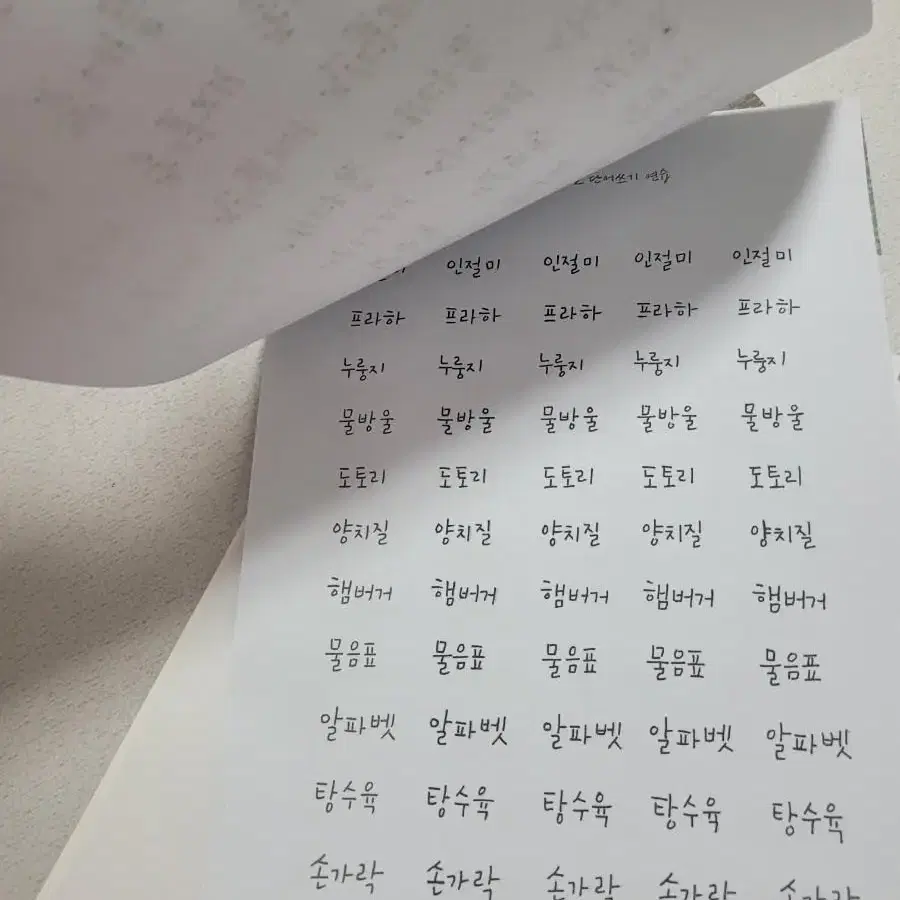 단어쓰기 연습
인절미 인절미 인절미 인절미
프라하 프라하 프라하 프라하 프라하
누룽지 누룽지 누룽지 누룽지 누룽지
물방울 물방울 물방울 물방울 물방울
도토리 도토리 도토리 도토리 도토리
양치질 양치질 양치질 양치질 양치질
햄버거 햄버거 햄버거 햄버거 햄버거
물음표 물음표 물음표 물음표 물음표
알파벳 알파벳 알파벳 알파벳 알파벳
탕수육 탕수육 탕수육 탕수육 탕수육
손가락 손가락 손가락 손가락 손가락